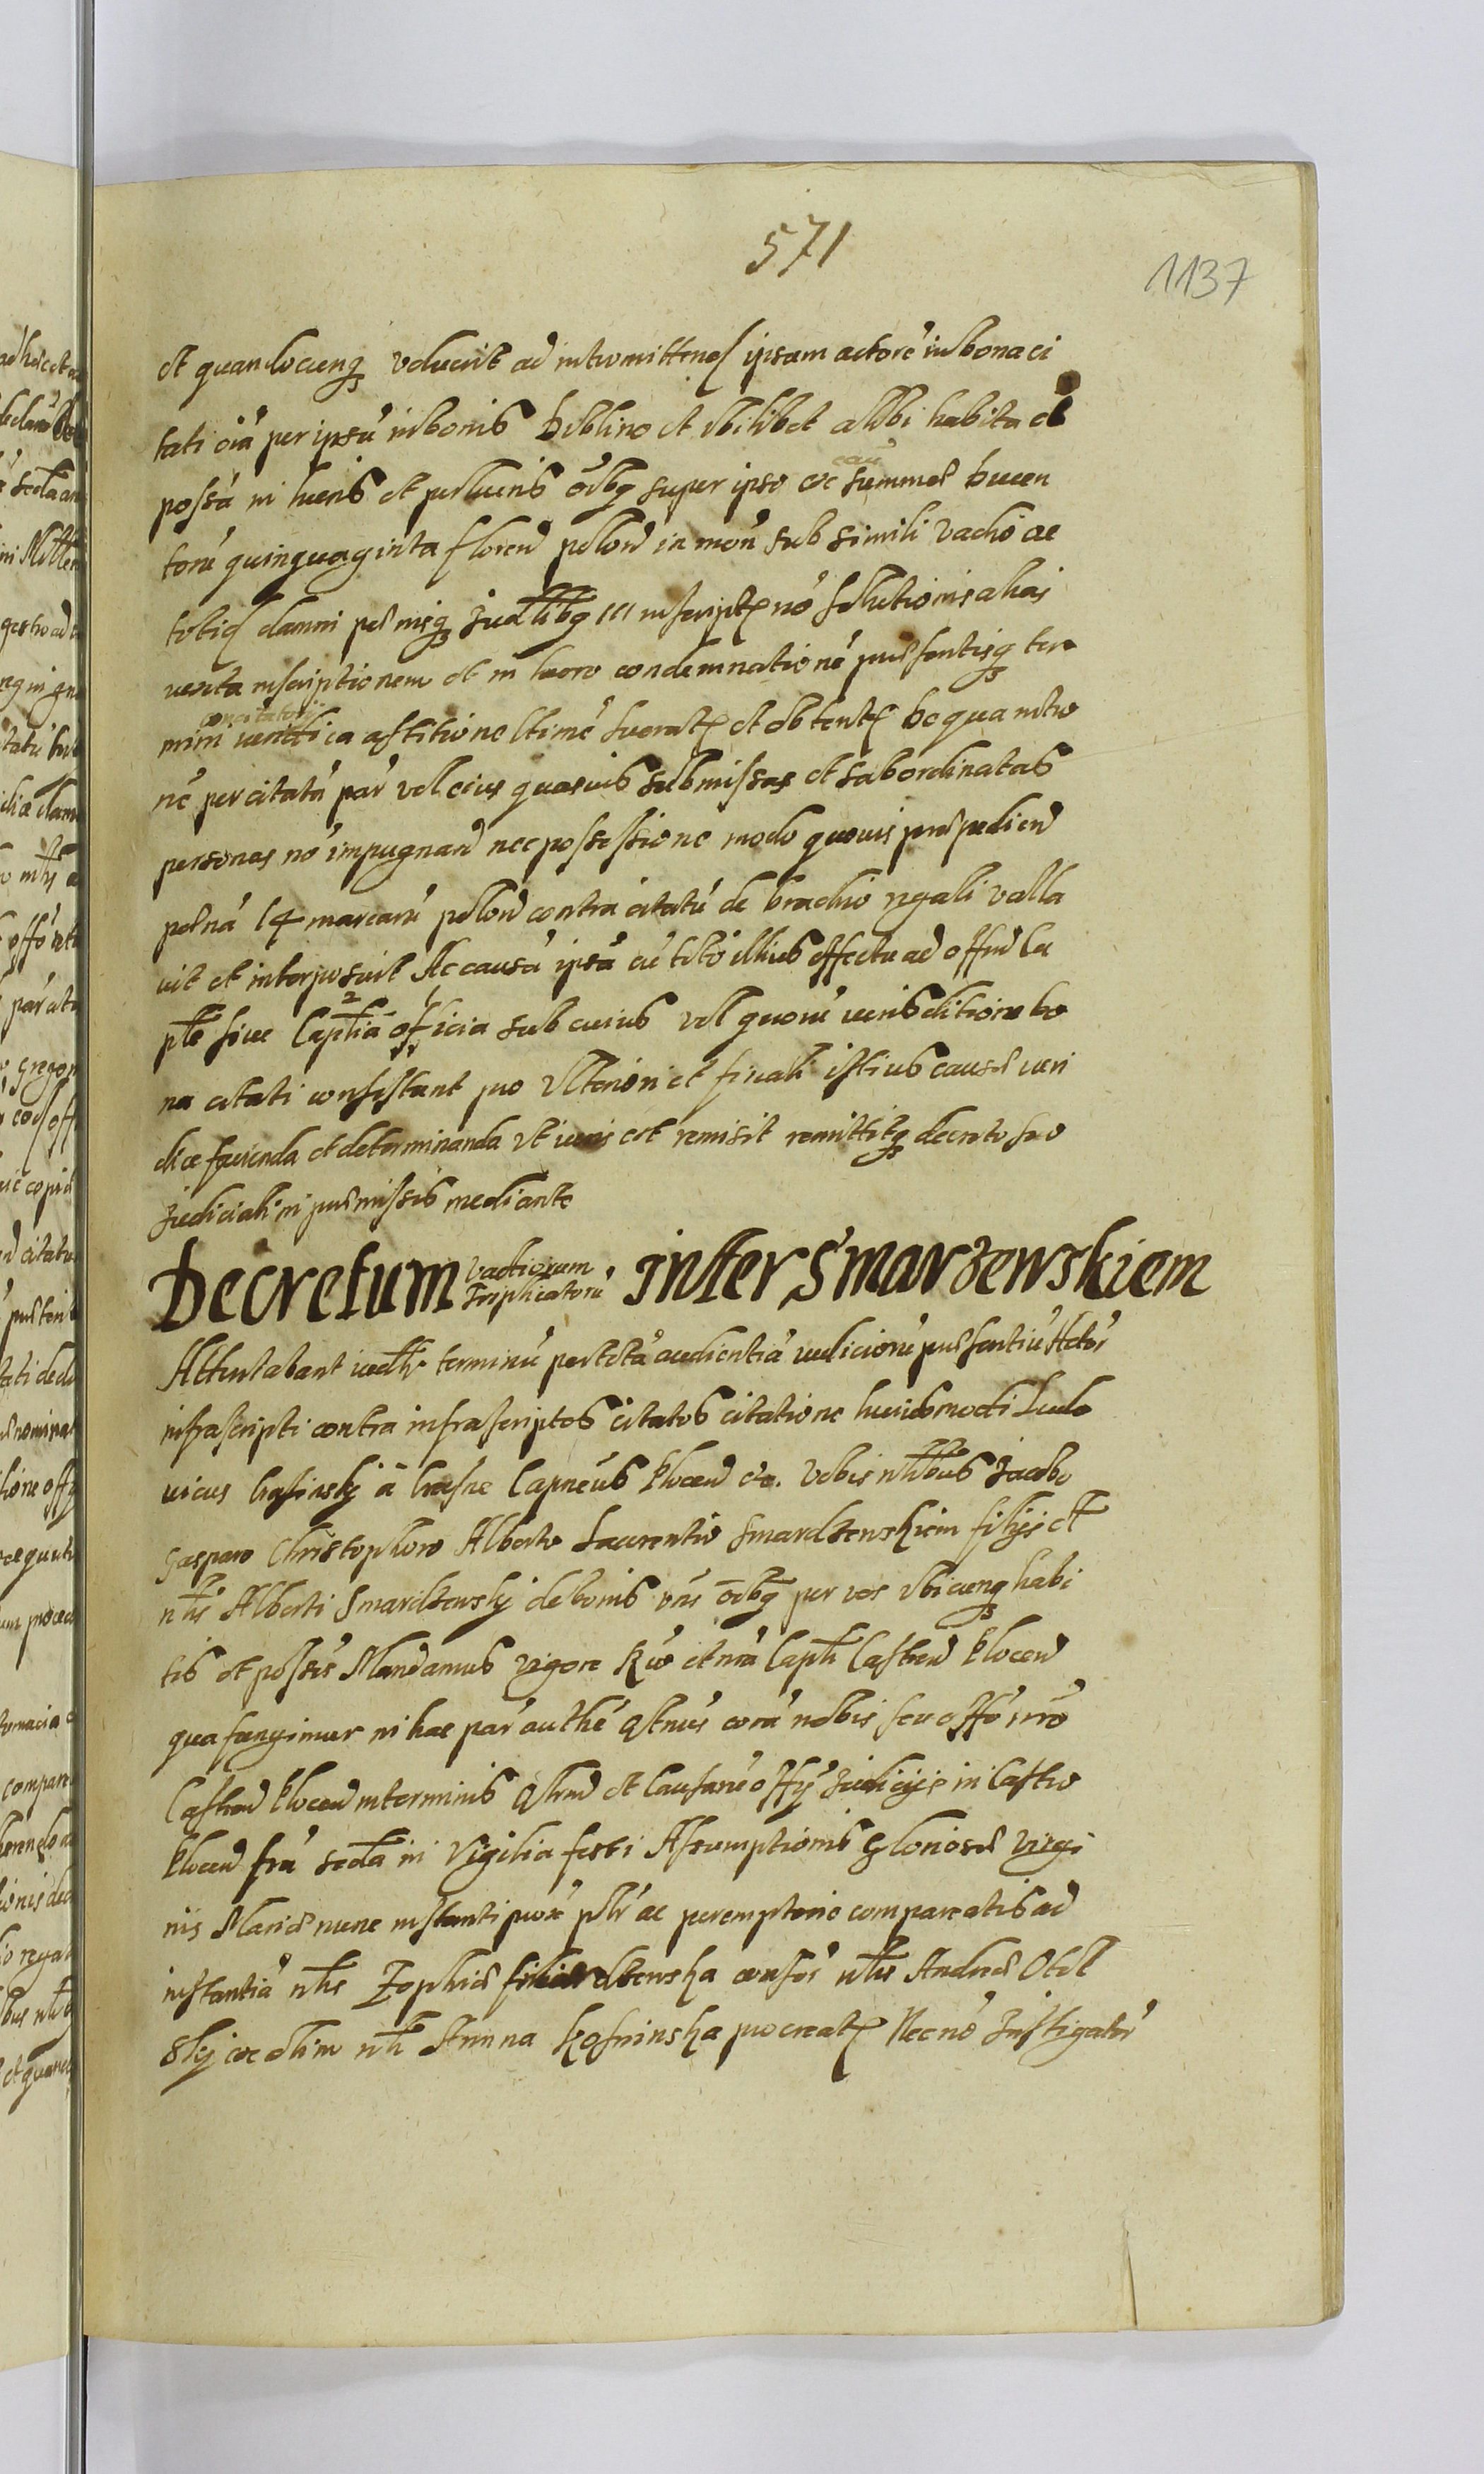 571
1137
et quandocunq voluerit ad intromittend ipsam actorē in bona ci
tati oiā per ipsū in bonis Diblino et ibilibet alibi habita et
possā in lucris et perlucris oībq super ipso ac cau summae Ducen
torū quinquaginta floren polon in mon sub simili vadio ac
totiq damni poenisq Iudlibq inscriptę nō solutionis alias
iuxta inscriptionem et in lucro condemnationē praesentisq ter
mini conciatorij ea astitione ltime lucratę et obtentę De qua intro
nē per citatū par vel eius quasuis submissas et subordinatas
personas nō impugnand nec possessione modo quouis praepediend
poenā 14 marcarū polon contra citatū de brachio regali valla
uit et interposuit Ac causā ipsā cū toto illius effectu ad offm Ca
ptle siue Captliā officia sub cuius vel quorū iurisditione bo
na citati consistant pro vlteriori et finali istius causae iuri
dice facienda et determinanda vt iuris est remisit remittitq decreto suo
Iudiciali in praemissis mediante
Decretum vadiorum Triplicatorū inter Smarzewskiem
Attentabant iudlr terminū per totā audientiā iudiciorū praesentiū Actor
infrascripti contra infrascriptos citatos citatione huiusmodi Ludo
uicus Krasinsky a Krasne Capneus Plocen etc. Vobis nlibus Iacobo
Gasparo Christophoro Alberto Laurentio Smardzewskiem filijs et
nlis Alberti Smardzewsky de bonis vris oībq per vos vbicunq habi
tis et possis Mandamus vigore Rūo et nrā Captli Castren Plocen
qua fungimur in hac par authē qtnus corā nobis seu offō nrō
Castren Plocen in terminis qtrnd et Causarū offij Iudicijs in Castro
Plocen frā scda in Vigilia festi Assumptionis Gloriosae Virgi
nis Mariae nunc instanti prox plr ac peremptorie compareatis ad
instantiā nlis Zophiae dzewska consor nlis Andreae
skij ac olim nli Anna Kosninska procreatę Necnō Instigator